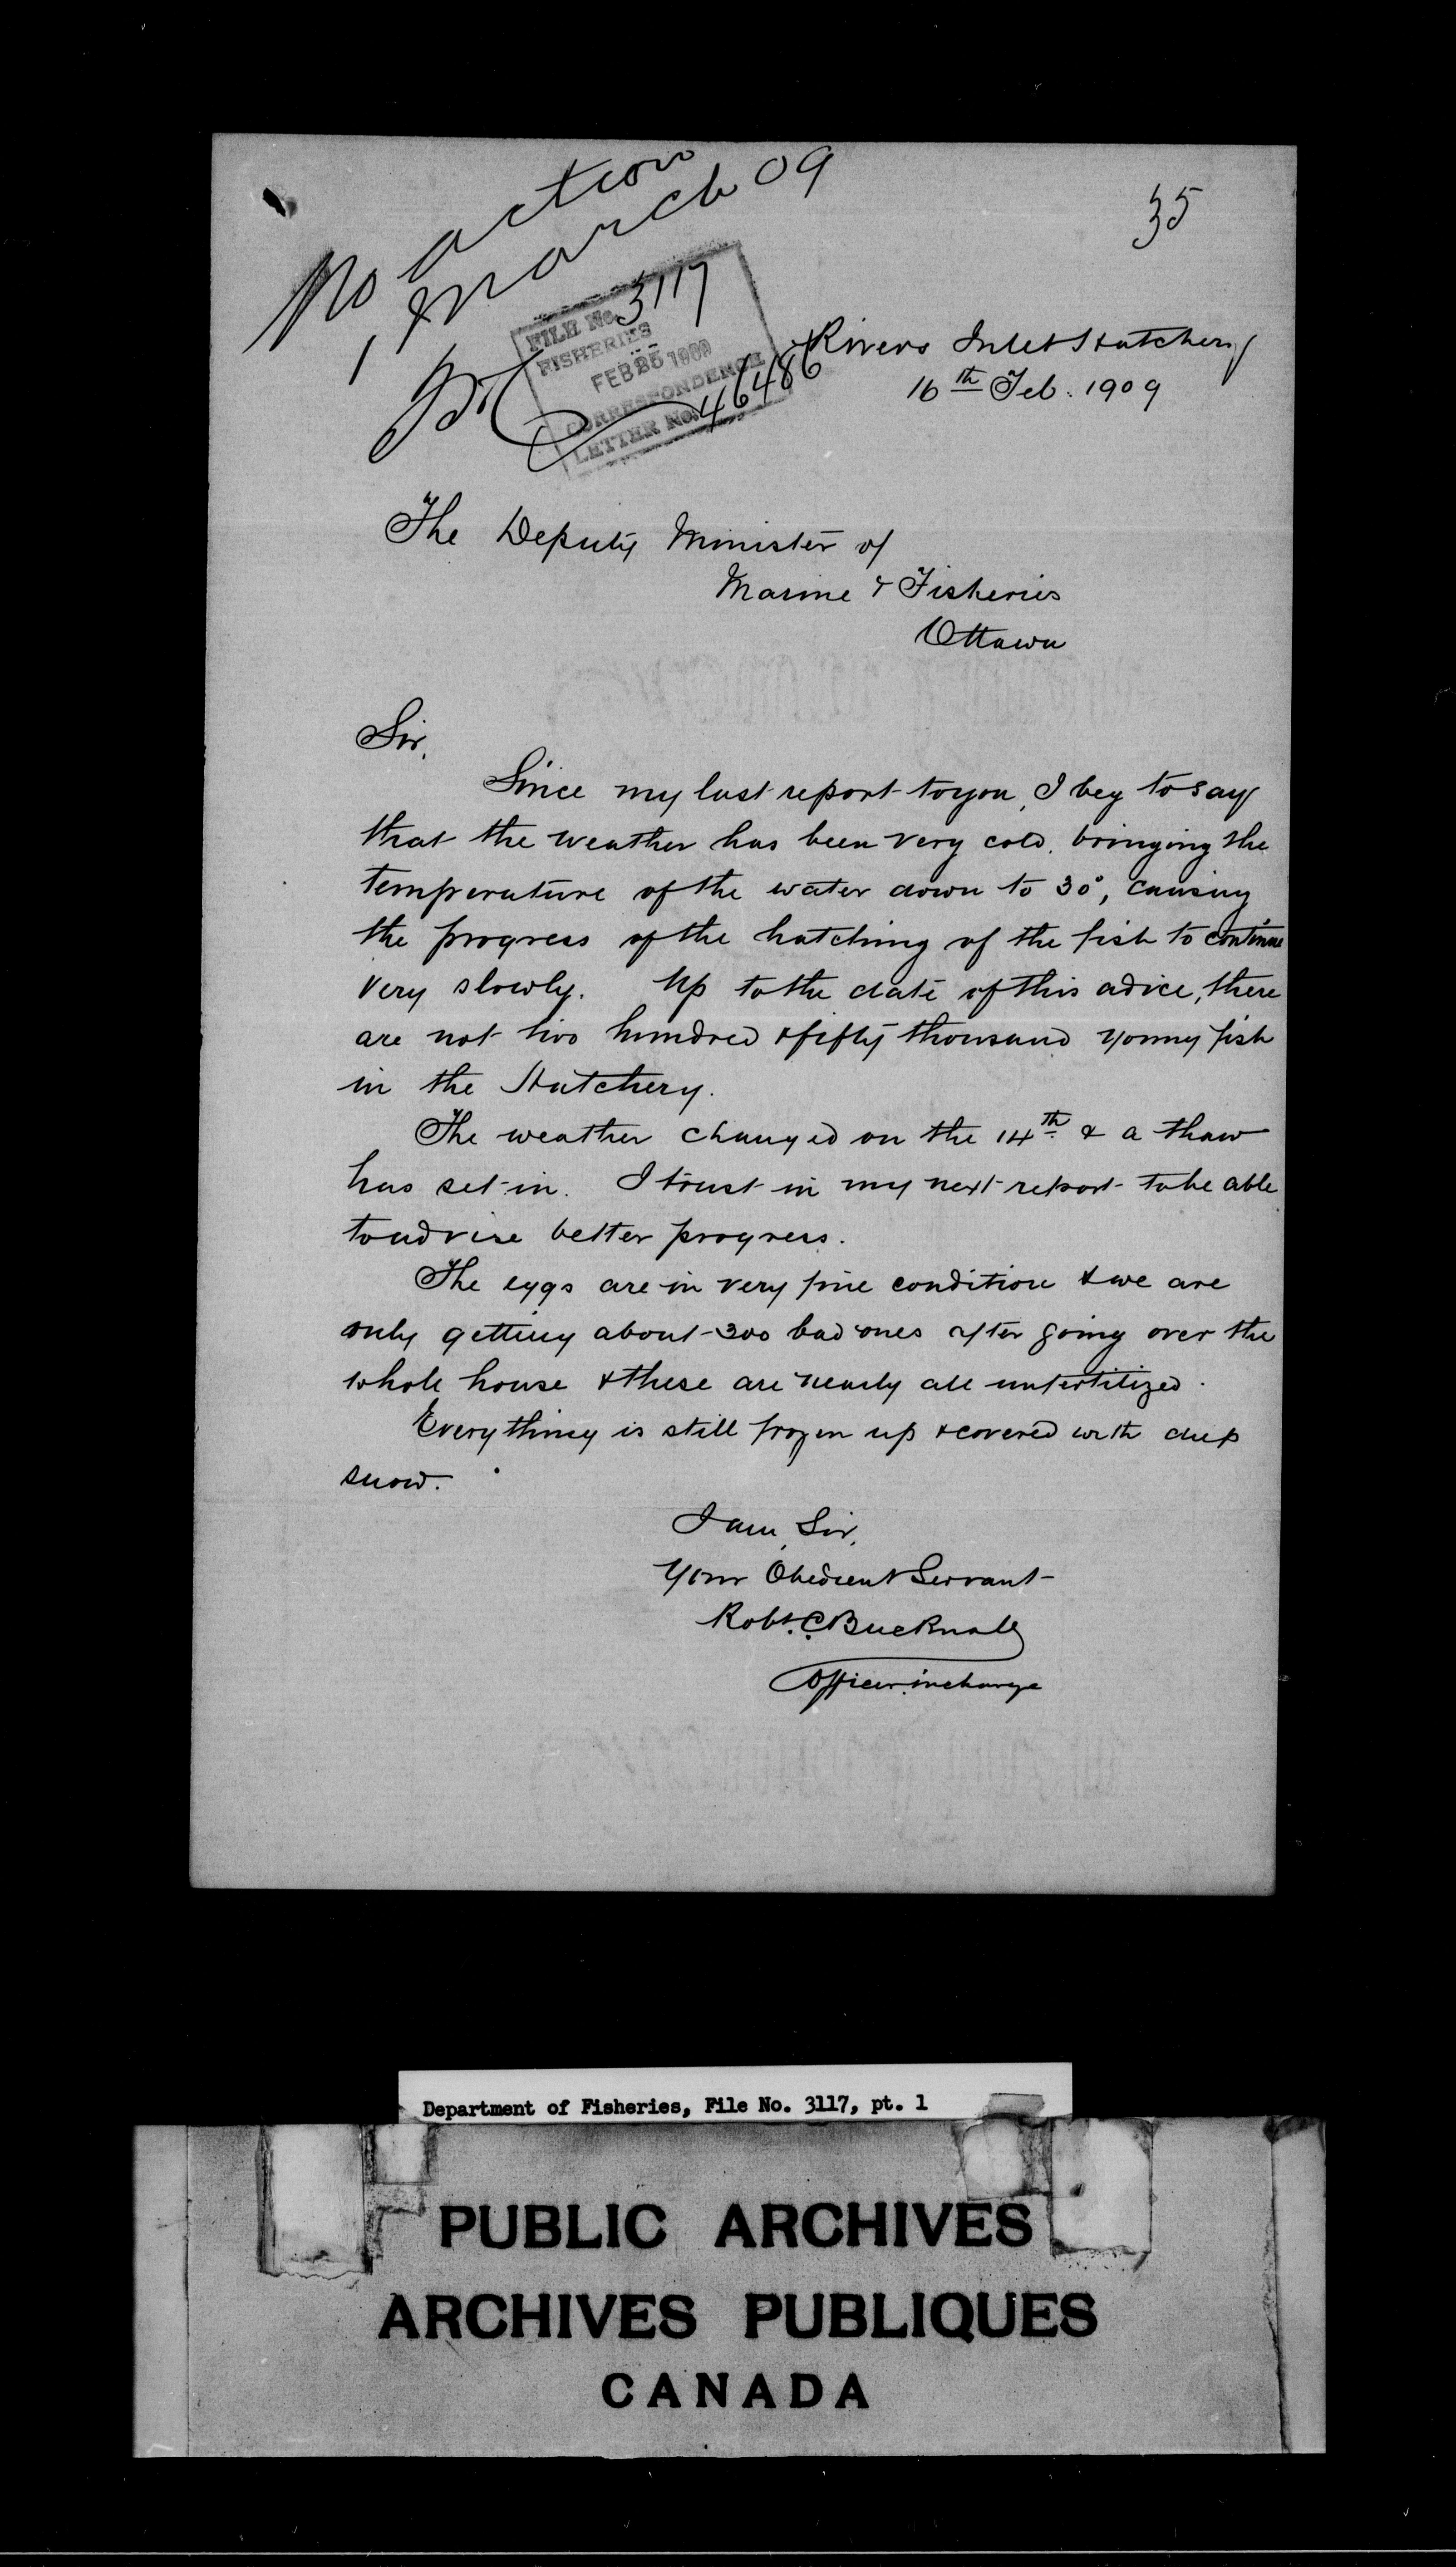 No action
1, March 09
35
FILE No. 3117
FISHERIES
FEB 25 1909
CORRESPONDENCE
LETTER No. 46486
Rivers Inlet Hatchery
16th Feb. 1909
The Deputy Minister of
Marine & Fisheries
Ottawa
Sir,
Since my last report to you, I beg to say
that the weather has been very cold, bringing the
temperature of the water down to 30°, causing
the progress of the hatching of the fish to continue
very slowly. Up to the date of this advice, there
are not two hundred & fifty thousand young fish
in the Hatchery.
The weather changed on the 14th & a thaw
has set in. I trust in my next report to be able
to advise better progress.
The eggs are in very fine condition & we are
only getting about 300 bad ones after going over the
whole house & these are nearly all unfertilized.
Everything is still frozen up & covered with deep
snow.
I am, Sir,
Your Obedient Servant
Robt. C Bucknall
Officer in charge
Department of Fisheries, File No. 3117, pt. 1
PUBLIC ARCHIVES
ARCHIVES PUBLIQUES
CANADA